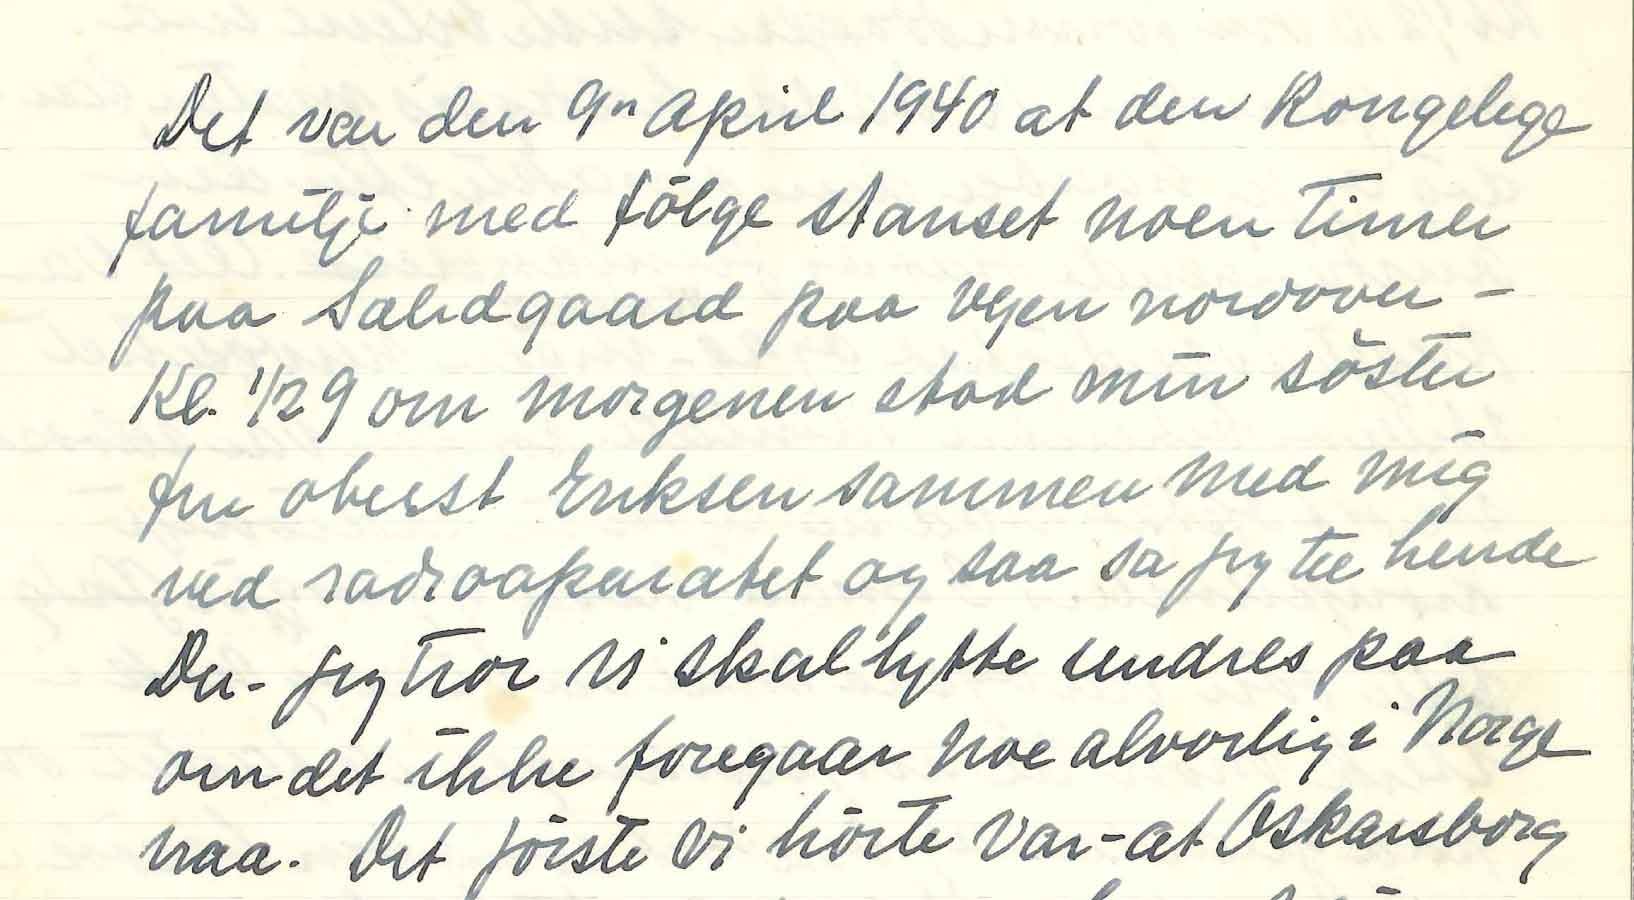 Det var den 9n April 1940 at den Kongelege
familje med følge stanset noen timer
paa Sælidgaard paa veien nordover -
Kl. 1/2 9 om morgenen stod min söster
fru oberst Eriksen sammen med mig
ved radioaparatet og saa sa jeg til hende
Du - jeg tror vi skal lytte undres paa
om det ikke foregaar noe alvorlig i Norge
naa. Det förste vi hörte var - at Oskarsborg